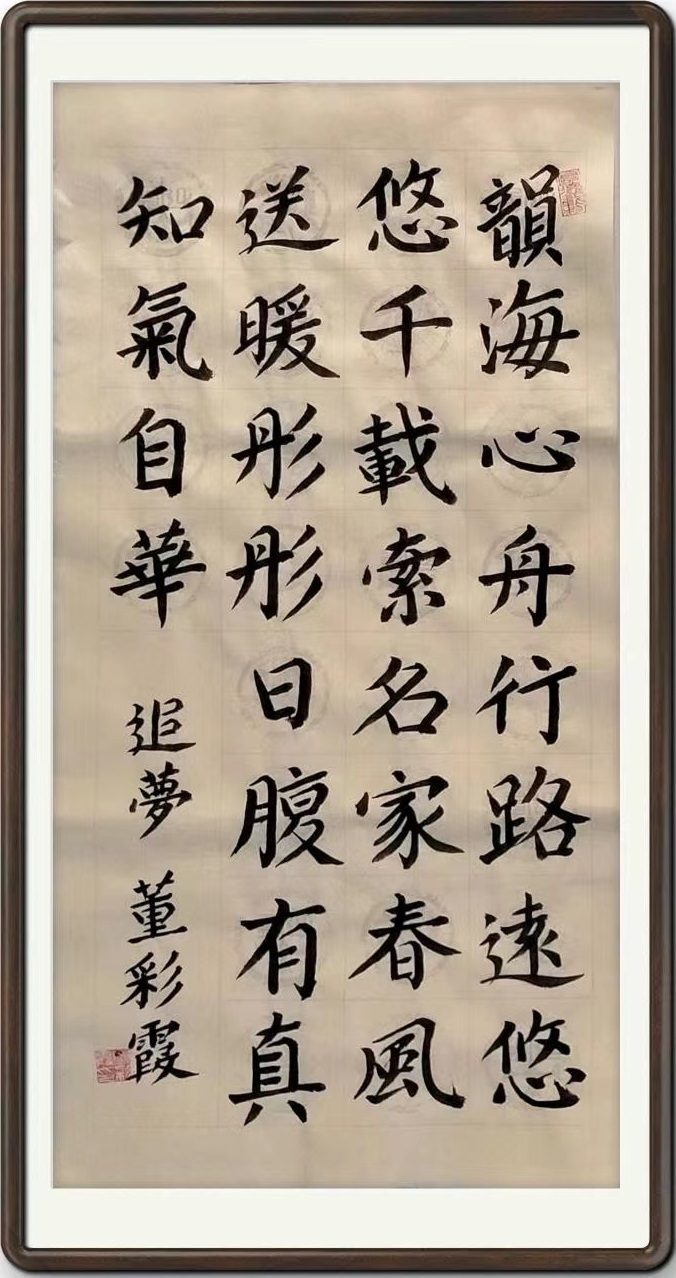 韻海心舟行路遠悠
悠千載索名家春風
送暖彤彤日腹有真
知氣自華
追夢 董彩霞